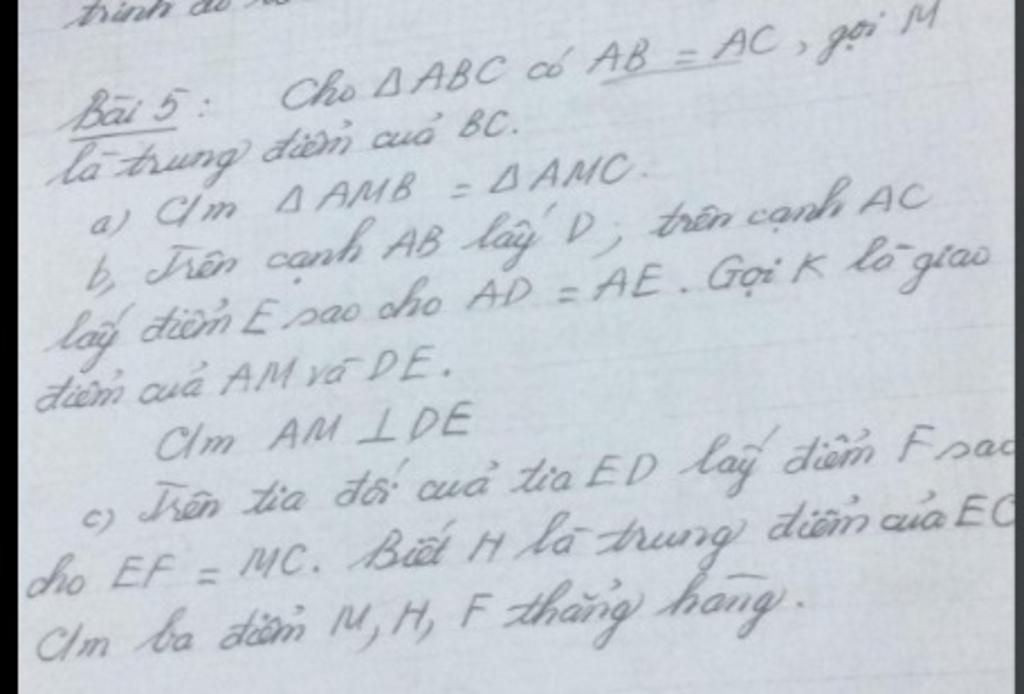 trình
Bài 5 : Cho ∆ABC có AB = AC, gọi M
là trung điểm của BC.
a) C/m ∆ AMB = ∆ AMC.
b, Trên cạnh AB lấy D, trên cạnh AC
lấy điểm E sao cho AD = AE. Gọi K là giao
điểm của AM và DE.
C/m AM ⊥ DE
c) Trên tia đối của tia ED lấy điểm F sao
cho EF = MC. Biết H là trung điểm của EC
C/m ba điểm M, H, F thẳng hàng.